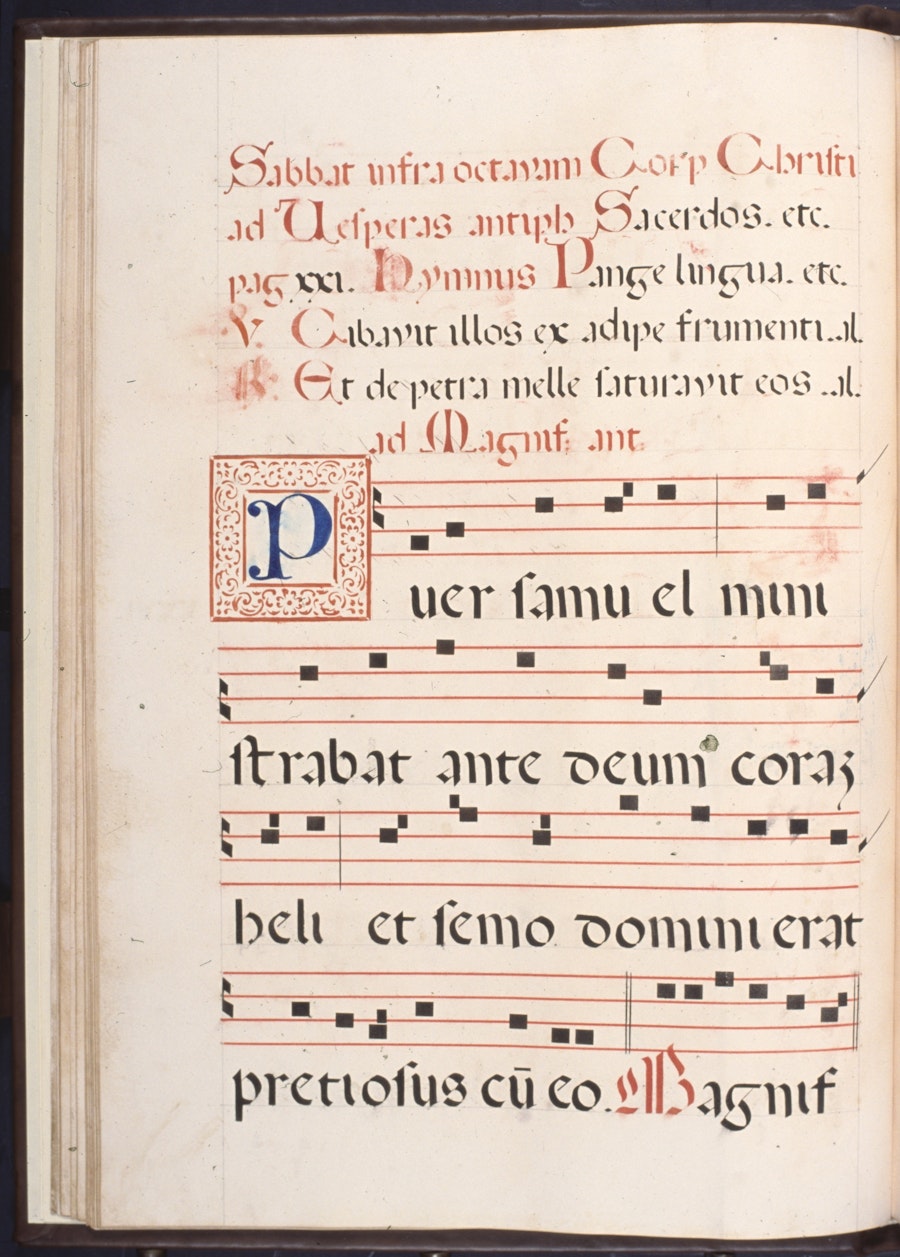 Sabbat infra octavam Corp Christi
ad Uesperas antiph Sacerdos. etc.
pag xxi. Hymnus Pange lingua. etc.
V. Cibavit illos ex adipe frumenti..al.
R. Et de petra melle saturavit eos ..al.
ad Magnif: ant:
Puer samu el mini
strabat ante deum coraz
heli et semo domini erat
pretiosus cū eo. Magnif